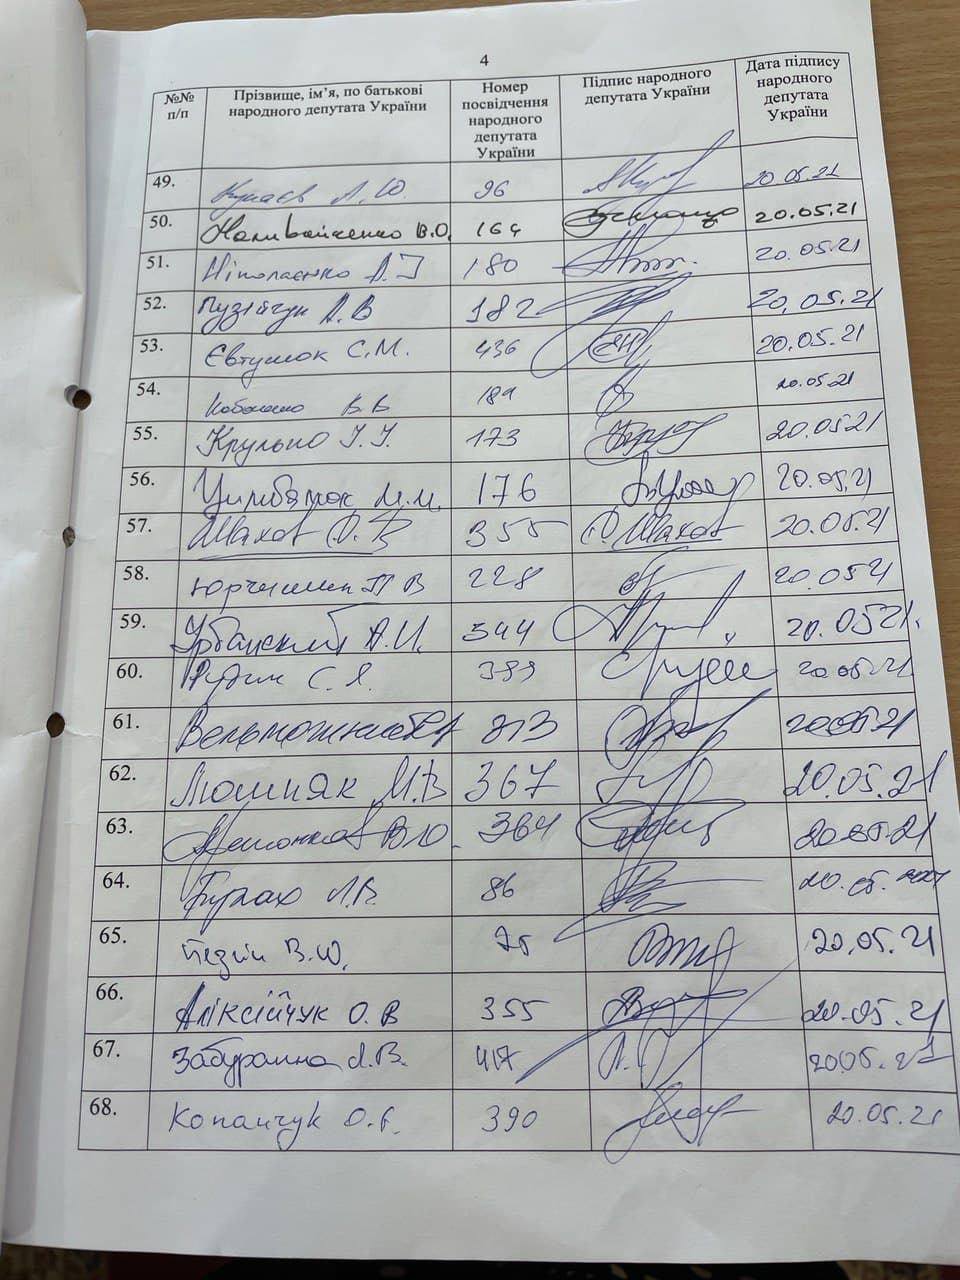 4
№№ п/п Прізвище, ім’я, по батькові народного депутата України Номер посвідчення народного депутата України Підпис народного депутата України Дата підпису народного депутата України
49. Кучаєв А. Ю. 96 20.05.21
50. Наливайченко В.О. 164 20.05.21
51. Ніколаєнко А. І 180 20.05.21
52. Пузійчук А. В 182 20.05.21
53. Євтушок С.М. 436 20.05.21
54. В. В 189 20.05.21
55. Крулько І. І. 173 20.05.21
56. Цимбалюк М.М. 176 20.05.21
57. Шахов С. В 355 С. Шахов 20.05.21
58. Юрчишин П В 228 20.05.21
59. Урбанський А.І. 344 20.05.21.
60. Рудик С. Я. 399 20.05.21
61. Вельможний С.А 20.05.21
62. Люшняк М.В 367 20.05.21
63. В.Ю. 364 20.05.21
64. Булах Л.В. 86 20.05.2021
65. Бєзгін В.Ю. 75 20.05.21
66. Аліксійчук О. В 355 20.05.21
67. Забуранна Л.В. 417 20.05.21
68. Копанчук О.Є. 390 20.05.21